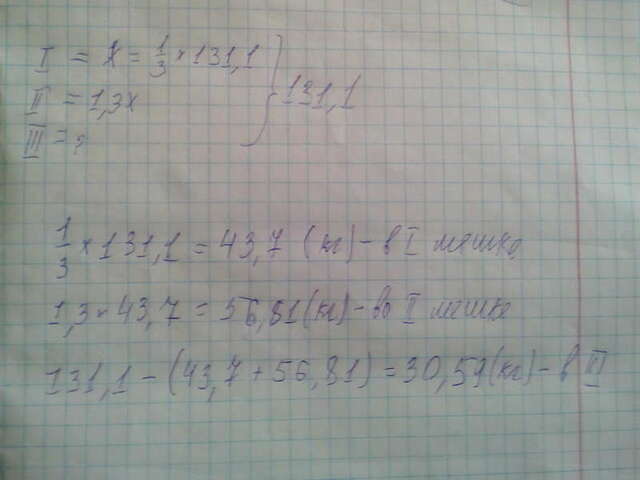 I = x = 1/3 × 131,1
II = 1,3x } 131,1
III = ?
1/3 × 131,1 = 43,7 (кг) – в I мешке
1,3 × 43,7 = 56,81 (кг) – во II мешке
131,1 – (43,7 + 56,81) = 30,59 (кг) – в III